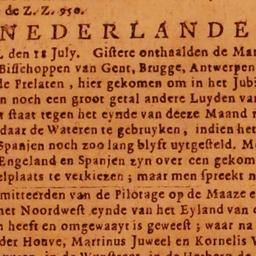 de Z. Z. 950.
NEDERLANDE
den 18 July. Gistere onthaalden de Mar
Bisschoppen van Gent, Brugge, Antwerpen
de Prelaten, hier gekomen om in het Jubi
en noch een groot getal andere Luyden van
staat tegen het eynde van deeze Maand n
daar de Wateren te gebruyken, indien het
Spanjen noch zoo lang blyft uytgesteld. Me
Engeland en Spanjen zyn over een gekom
elplaats te verkiezen; maar men spreekt n
mitteerden van de Pilotage op de Maaze e
het Noordwest eynde van het Eyland van
n heeft en omgewaayt is geweest; waar na
der Hoeve, Martinus Juweel en Kornelis V